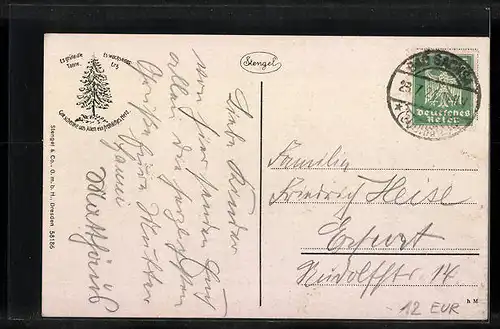 Es grüne die
Tanne,
Es wachse das
Erz
Gott schenke uns Allen ein fröhliches Herz.
Stengel
BAD SACHSA
Deutsches
Reich
Liebe Kinder
von hier senden Euch
allen die herzlichsten
Grüße Eure Mutter
Stengel & Co., G. m. b. H., Dresden 58186
Familie
Friedrich Heise
Erfurt
Rudolfstr. 14
12 EUR